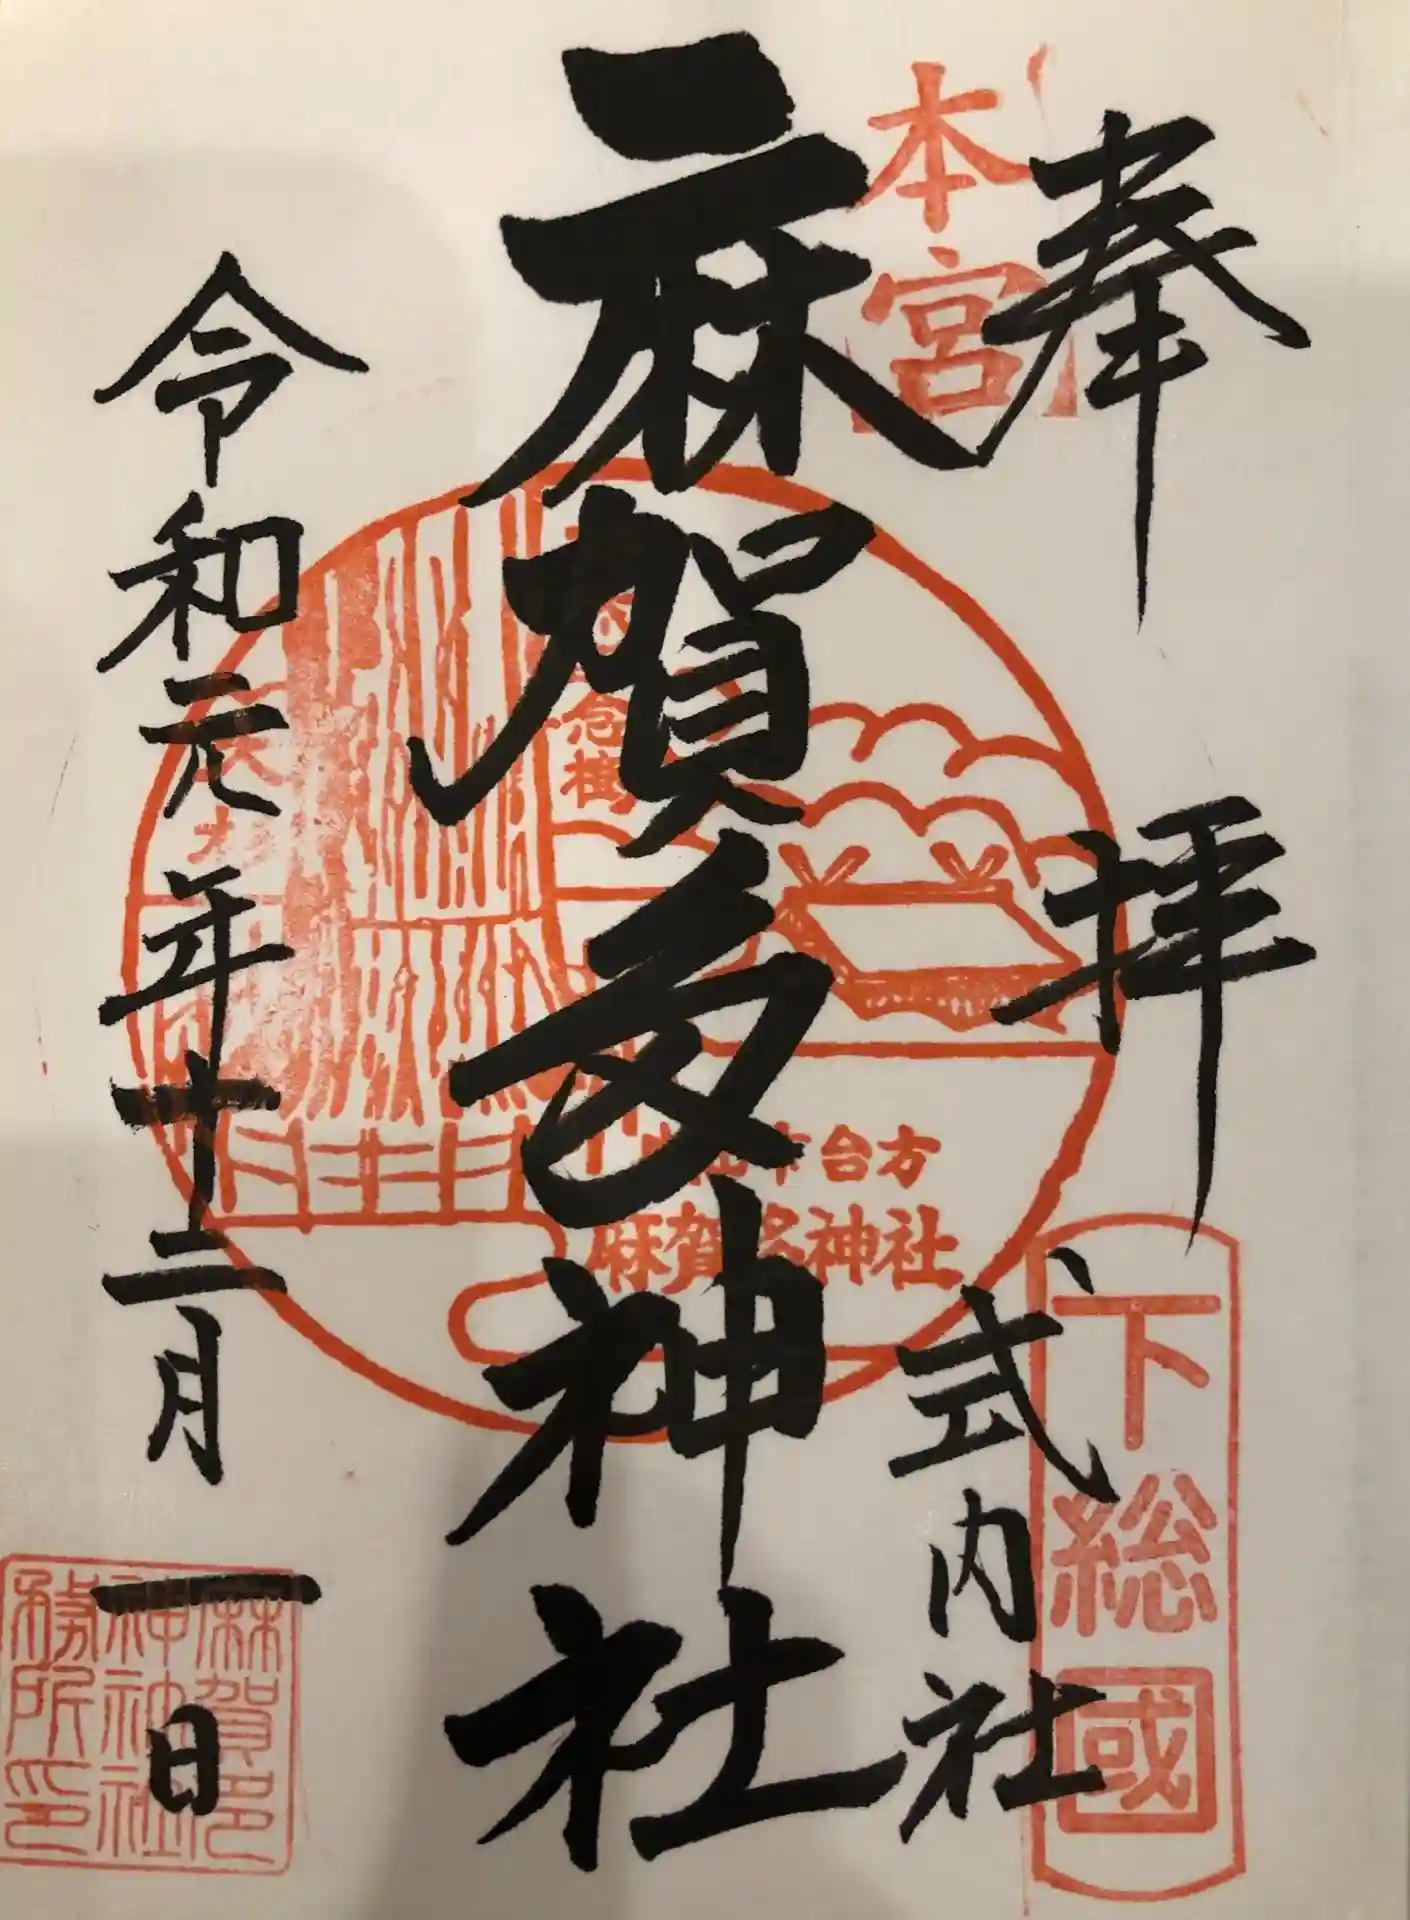 奉拝
本宮
式内社
下総國
麻賀多神社
念樹
台方
麻賀多神社
令和元年十二月一日
麻賀多
神社社
務所印